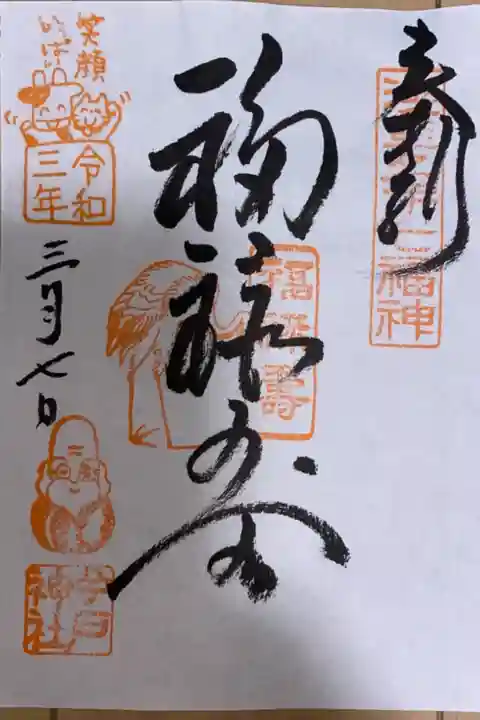 奉拝
福禄寿
福禄寿
笑顔
いっぱい
令和
三年
三月七日
神社